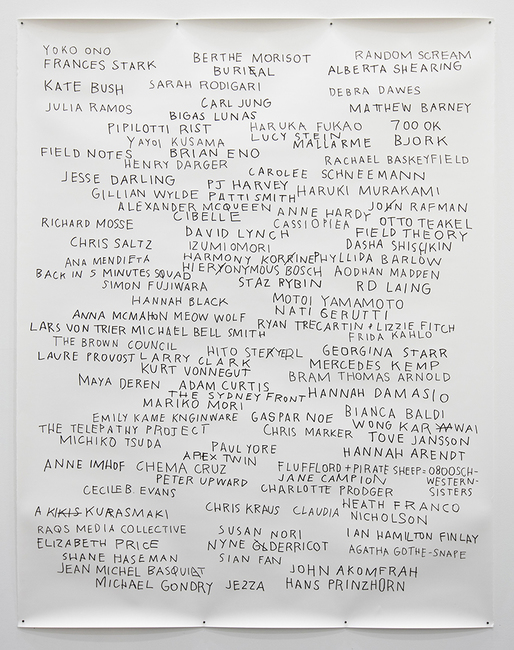 YOKO ONO
BERTHE MORISOT RANDOM SCREAM
FRANCES STARK BURIAL ALBERTA SHEARING
KATE BUSH SARAH RODIGARI DEBRA DAWES
JULIA RAMOS CARL JUNG MATTHEW BARNEY
BIGAS LUNAS
PIPILOTTI RIST HARUKA FUKAO 700 OK
YAYOI KUSAMA LUCY STEIN MALLARME BJORK
FIELD NOTES BRIAN ENO
HENRY DARGER RACHAEL BASKEYFIELD
JESSE DARLING CAROLEE SCHNEEMANN
GILLIAN WYLDE PJ HARVEY PATTI SMITH HARUKI MURAKAMI
ALEXANDER MCQUEEN ANNE HARDY JOHN RAFMAN
RICHARD MOSSE CIBELLE CASSIOPIEA OTTO TEAKEL
DAVID LYNCH FIELD THEORY
CHRIS SALTZ IZUMI OMORI DASHA SHISHKIN
ANA MENDIETA HARMONY KORRINE PHYLLIDA BARLOW
BACK IN 5 MINUTES SQUAD HIERYONYMOUS BOSCH AODHAN MADDEN
SIMON FUJIWARA STAZ RYBIN RD LAING
HANNAH BLACK MOTOI YAMAMOTO
ANNA MCMAHON MEOW WOLF NATI CERUTTI
LARS VON TRIER MICHAEL BELL SMITH RYAN TRECARTIN + LIZZIE FITCH
THE BROWN COUNCIL FRIDA KAHLO
LAURE PROVOST LARRY CLARK HITO STEYERL GEORGINA STARR
KURT VONNEGUT MERCEDES KEMP
MAYA DEREN ADAM CURTIS BRAM THOMAS ARNOLD
THE SYDNEY FRONT HANNAH DAMASIO
MARIKO MORI
EMILY KAME KNGINWARE GASPAR NOE BIANCA BALDI
THE TELEPATHY PROJECT CHRIS MARKER WONG KAR WAI
MICHIKO TSUDA TOVE JANSSON
PAUL YORE HANNAH ARENDT
APEX TWIN
ANNE IMHOF CHEMA CRUZ FLUFFLORD + PIRATE SHEEP = 08DOSCH-
PETER UPWARD JANE CAMPION WESTERN-
CECILE B. EVANS CHARLOTTE PRODGER SISTERS
A KIKIS KURASMAKI CHRIS KRAUS CLAUDIA HEATH FRANCO
NICHOLSON
RAQS MEDIA COLLECTIVE SUSAN NORI IAN HAMILTON FINLAY
ELIZABETH PRICE NYNE OLDERRICOT
SHANE HASEMAN SIAN FAN AGATHA GOTHE-SNAPE
JEAN MICHEL BASQUIAT JOHN AKOMFRAH
MICHAEL GONDRY JEZZA HANS PRINZHORN